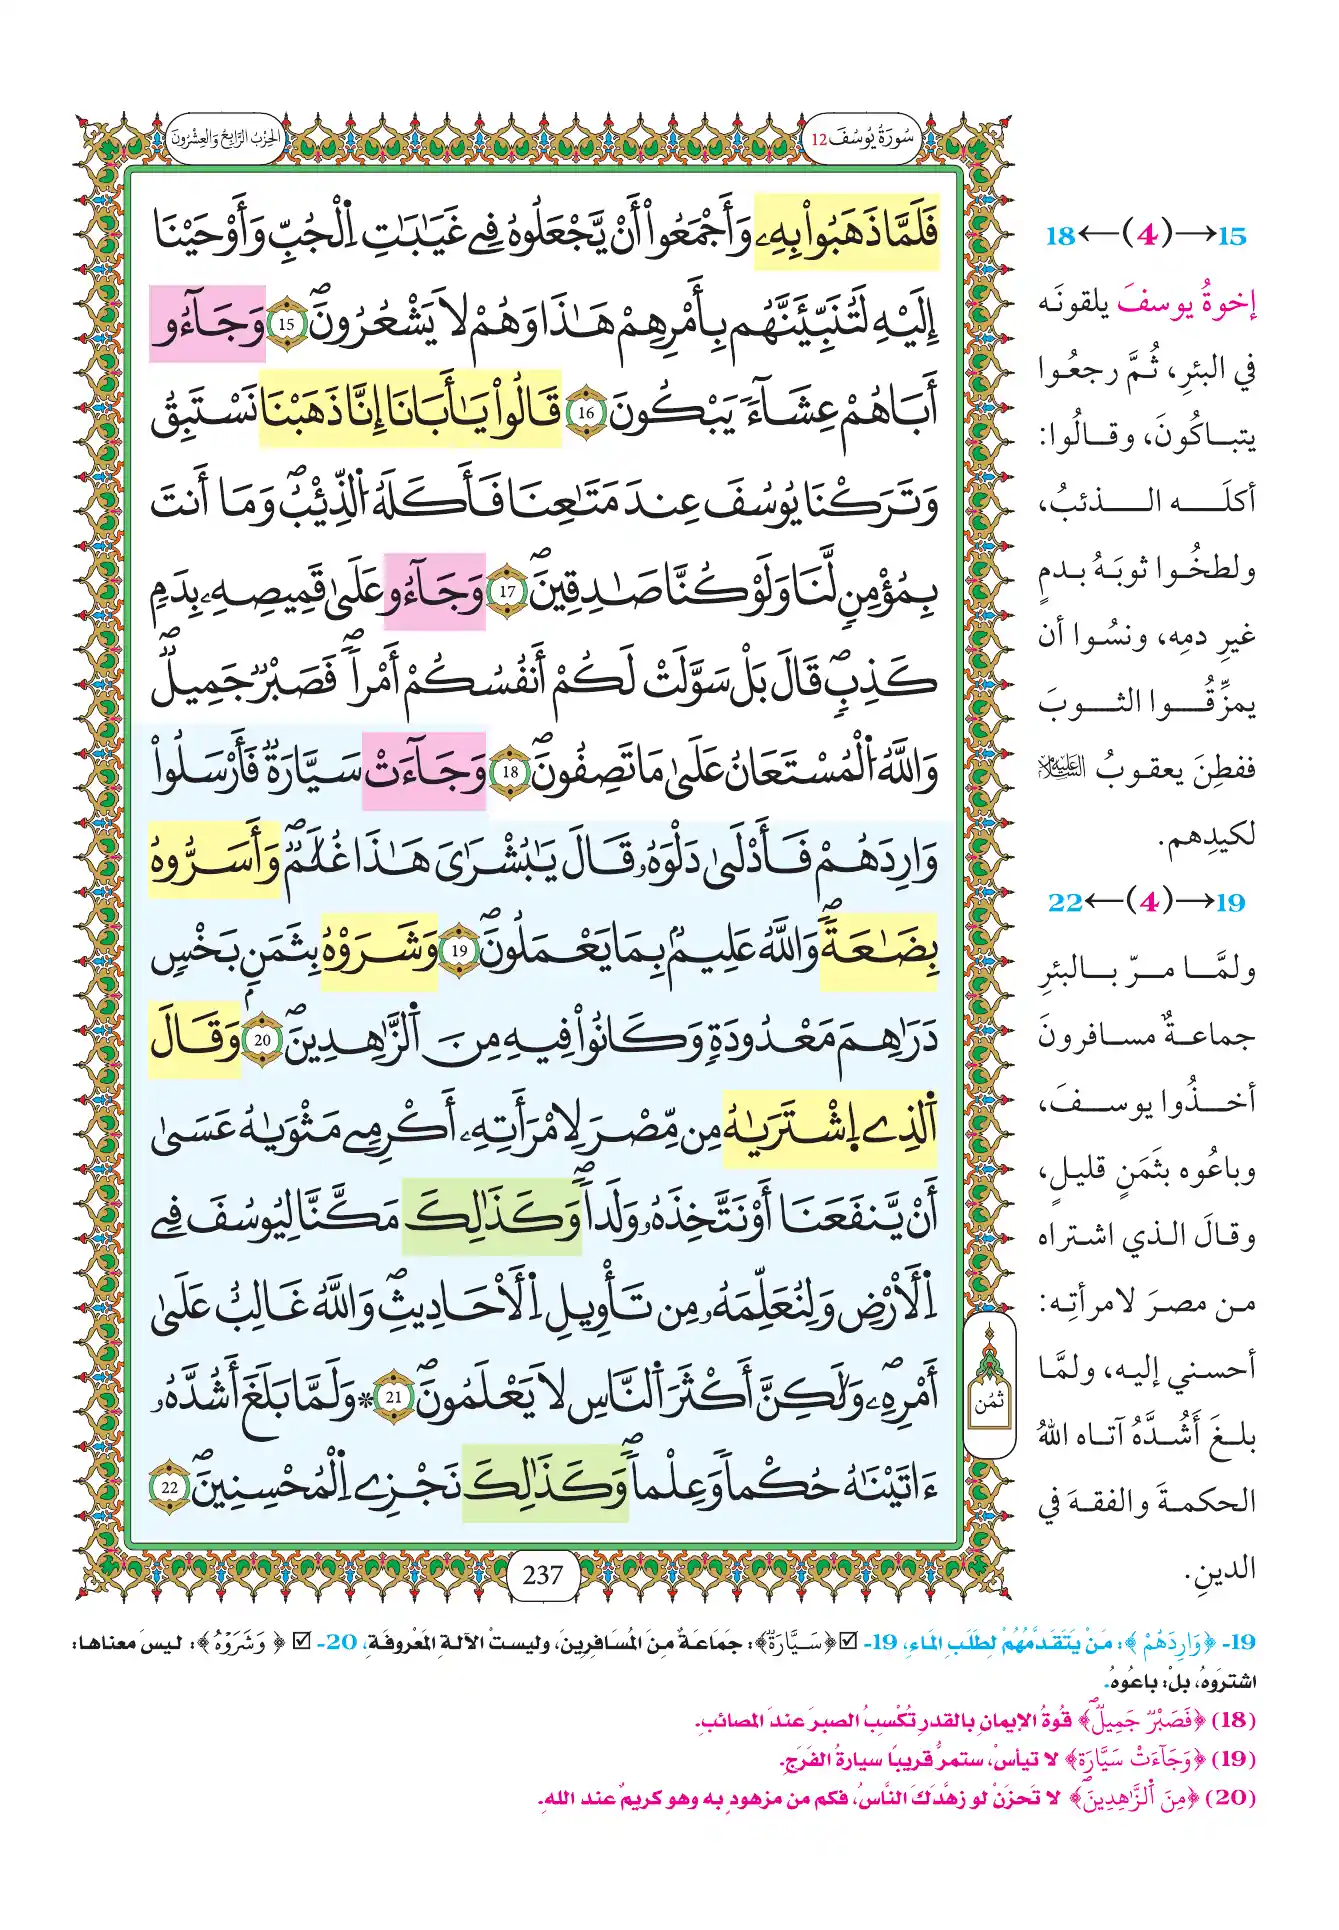 سُورَةُ يُوسُفَ 12
الحِزْبُ الرَّابِعُ وَالعِشْرُونَ
فَلَمَّا ذَهَبُواْ بِهِۦ وَأَجْمَعُواْ أَنْ يَّجْعَلُوهُ فِے غَيَٰبَٰتِ اِ۬لْجُبِّ وَأَوْحَيْنَا
إِلَيْهِ لَتُنَبِّئَنَّهُم بِأَمْرِهِمْ هَٰذَا وَهُمْ لَا يَشْعُرُونَۖ 15 وَجَآءُو
أَبَاهُمْ عِشَآءٗ يَبْكُونَ 16 قَالُواْ يَٰٓأَبَانَا إِنَّا ذَهَبْنَا نَسْتَبِقُ
وَتَرَكْنَا يُوسُفَ عِندَ مَتَٰعِنَا فَأَكَلَهُ اُ۬لذِّئْبُۖ وَمَا أَنتَ
بِمُؤْمِنٖ لَّنَا وَلَوْ كُنَّا صَٰدِقِينَۖ 17 وَجَآءُو عَلَىٰ قَمِيصِهِۦ بِدَمٖ
كَذِبٖۖ قَالَ بَلْ سَوَّلَتْ لَكُمْ أَنفُسُكُمْ أَمْراٗۖ فَصَبْرٞ جَمِيلٞۖ
وَاللَّهُ اُ۬لْمُسْتَعَانُ عَلَىٰ مَا تَصِفُونَۖ 18 وَجَآءَتْ سَيَّارَةٞ فَأَرْسَلُواْ
وَارِدَهُمْ فَأَدْلَىٰ دَلْوَهُۥ قَالَ يَٰبُشْرَايَ هَٰذَا غُلَٰمٞۖ وَأَسَرُّوهُ
بِضَٰعَةٗۖ وَاللَّهُ عَلِيمٌۢ بِمَا يَعْمَلُونَۖ 19 وَشَرَوْهُ بِثَمَنِۢ بَخْسٖ
دَرَٰهِمَ مَعْدُودَةٖ وَكَانُواْ فِيهِ مِنَ اَ۬لزَّٰهِدِينَۖ 20 وَقَالَ
اَ۬لذِے اِ۪شْتَر۪يٰهُ مِن مِّصْرَ لِامْرَأَتِهِۦ أَكْرِمِے مَثْو۪يٰهُ عَسَىٰ
أَنْ يَّنفَعَنَا أَوْ نَتَّخِذَهُۥ وَلَداٗۖ وَكَذَٰلِكَ مَكَّنَّا لِيُوسُفَ فِے
اِ۬لْأَرْضِ وَلِنُعَلِّمَهُۥ مِن تَأْوِيلِ اِ۬لْأَحَادِيثِۖ وَاللَّهُ غَالِبٌ عَلَىٰ
أَمْرِهِۦۖ وَلَٰكِنَّ أَكْثَرَ اَ۬لنَّاسِ لَا يَعْلَمُونَۖ 21 * وَلَمَّا بَلَغَ أَشُدَّهُۥ
ءَاتَيْنَٰهُ حُكْماٗ وَعِلْماٗۖ وَكَذَٰلِكَ نَجْزِے اِ۬لْمُحْسِنِينَۖ 22
ثُمُن
237
15→(4)←18
إخوةُ يوسفَ يلقونَه
في البئرِ، ثُمَّ رجعُوا
يتباكُونَ، وقالُوا:
أكلَه الذئبُ،
ولطخُوا ثوبَهُ بدمٍ
غيرِ دمِه، ونسُوا أن
يمزِّقُوا الثوبَ
ففطِنَ يعقوبُ عليه السلام
لكيدِهم.
19→(4)←22
ولمَّا مرّ بالبئرِ
جماعةٌ مسافرونَ
أخذُوا يوسفَ،
وباعُوه بثَمَنٍ قليلٍ،
وقالَ الذي اشتراه
من مصرَ لامرأتِه:
أحسني إليه، ولمَّا
بلغَ أَشُدَّهُ آتاه اللهُ
الحكمةَ والفقهَ في
الدينِ.
19- ﴿وَارِدَهُمْ﴾: مَنْ يَتَقَدَّمُهُمْ لِطَلَبِ المَاءِ، 19- ☑ ﴿سَيَّارَةٞ﴾: جَمَاعَةٌ مِنَ المُسَافِرِينَ، وليستْ الآلةِ المَعْروفَةِ، 20- ☑ ﴿وَشَرَوْهُ﴾: ليسَ معناها:
اشتروَهُ، بلْ: باعُوهُ.
(18) ﴿فَصَبْرٞ جَمِيلٞۖ﴾ قُوةُ الإيمانِ بالقدرِ تُكْسِبُ الصبرَ عندَ المصائبِ.
(19) ﴿وَجَآءَتْ سَيَّارَةٞ﴾ لا تيأسْ، ستمرُّ قريبًا سيارةُ الفَرَجِ.
(20) ﴿مِنَ اَ۬لزَّٰهِدِينَۖ﴾ لا تَحزَنْ لو زهَّدَكَ النَّاسُ، فكم من مزهودٍ به وهو كريمٌ عند اللهِ.